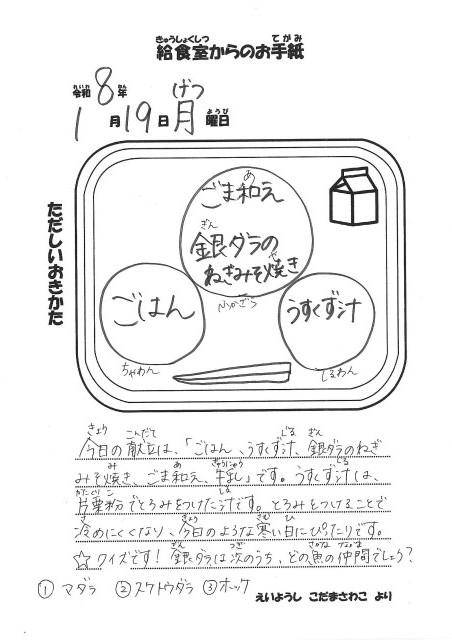 給食室からのお手紙
令和8年
1月19日月曜日
ただしいおきかた
ごま和え
銀ダラの
ねぎみそ焼き
ごはん
うすくず汁
ちゃわん
しるわん
今日の献立は、「ごはん、うすくず汁、銀ダラのねぎ
みそ焼き、ごま和え、牛乳」です。うすくず汁は、
片栗粉でとろみをつけた汁です。とろみをつけることで
冷めにくくなり、今日のような寒い日にぴったりです。
☆クイズです！銀ダラは次のうち、どの魚の仲間でしょう？
①マダラ ②スケトウダラ ③ホッケ
えいようし こだまさわこ より